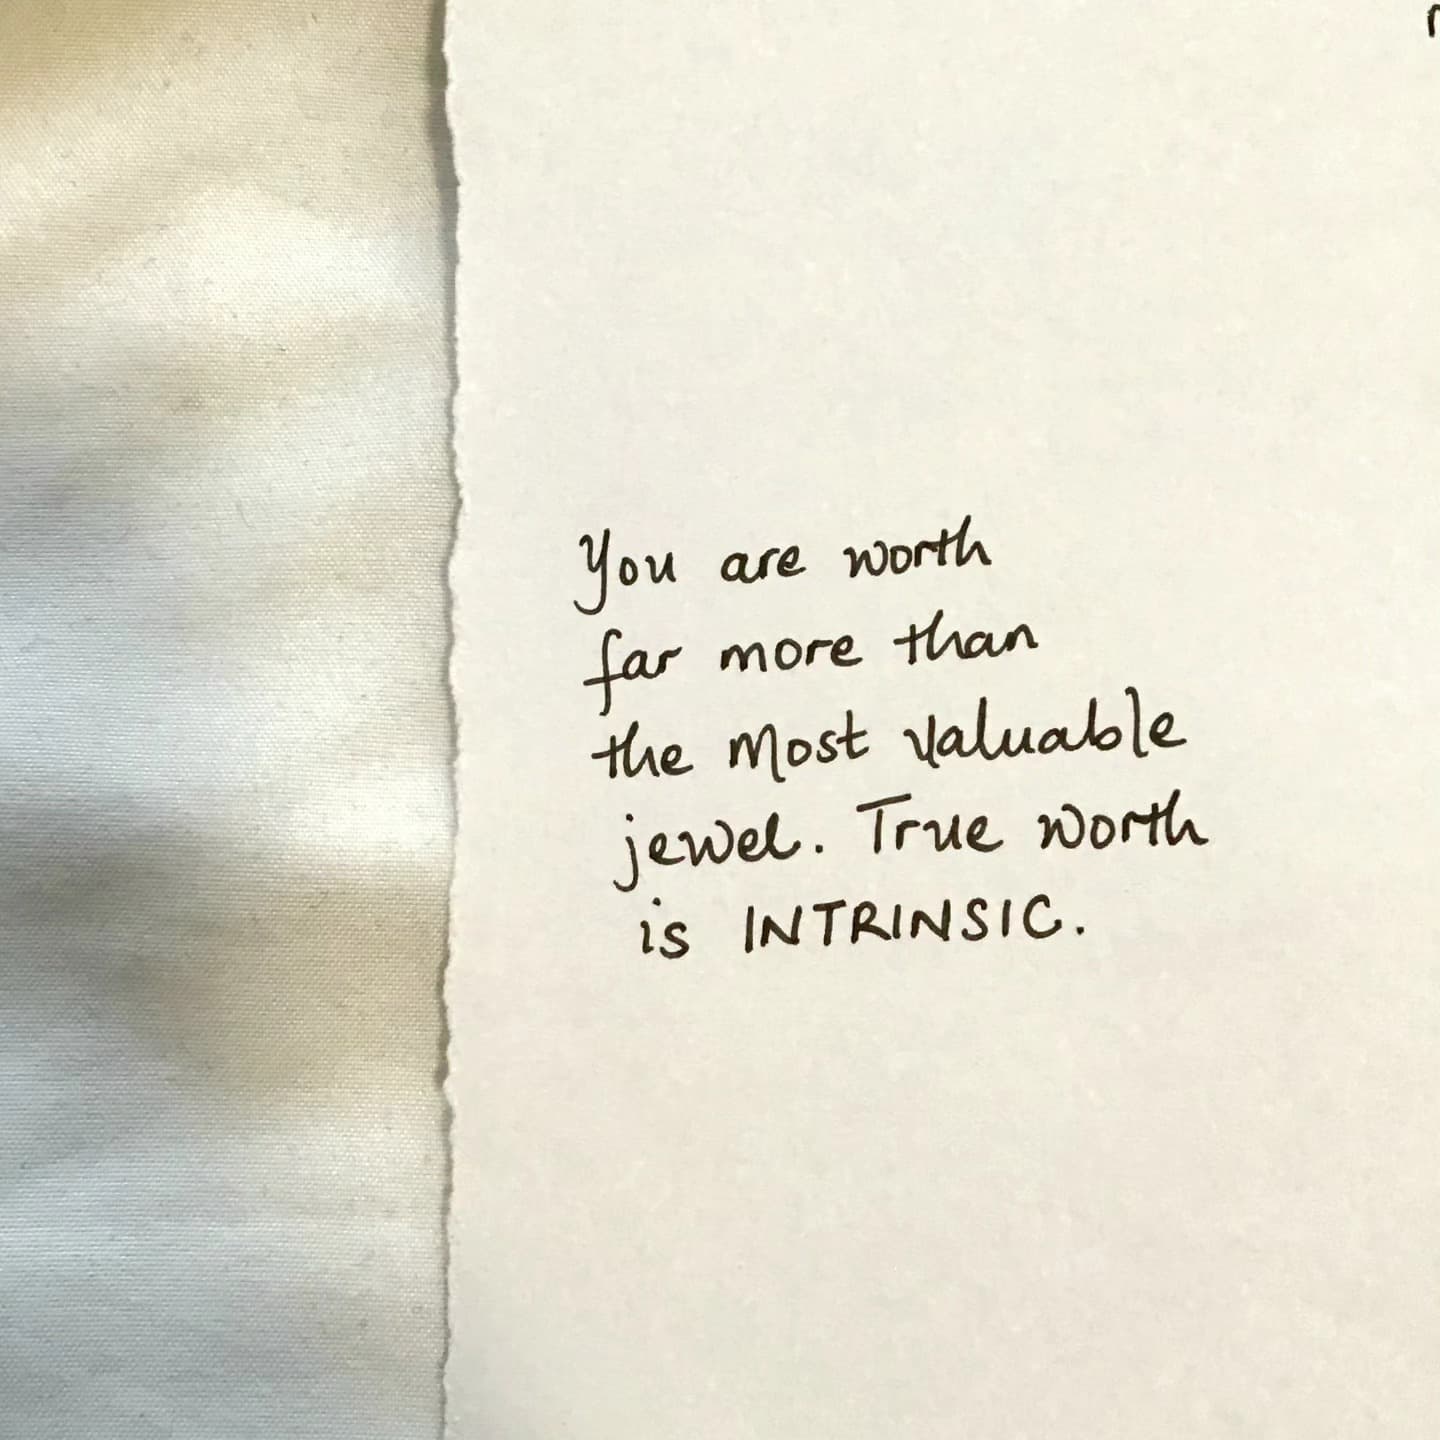 You are worth
far more than
the most valuable
jewel. True worth
is INTRINSIC.